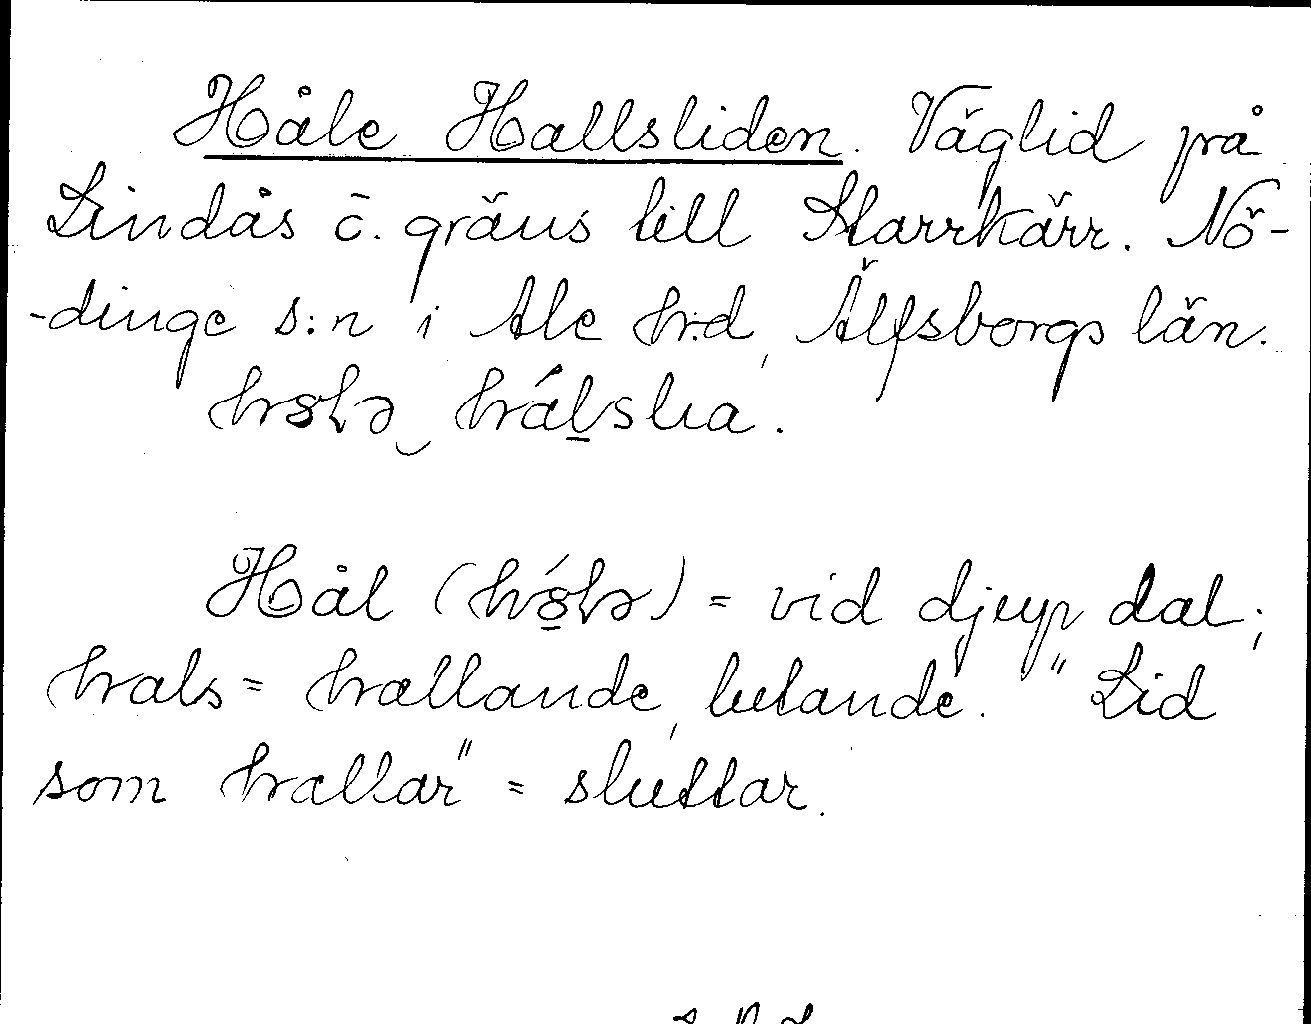 Håle Hallsliden. Väglid på
Lindås ö. gräns till Starrkärr. Nö-
-dinge s:n i Ale h:d, Älfsborgs län.
Hål = vid djup dal;
hals = hallande, lutande. "Lid
som hallar" = sluttar.